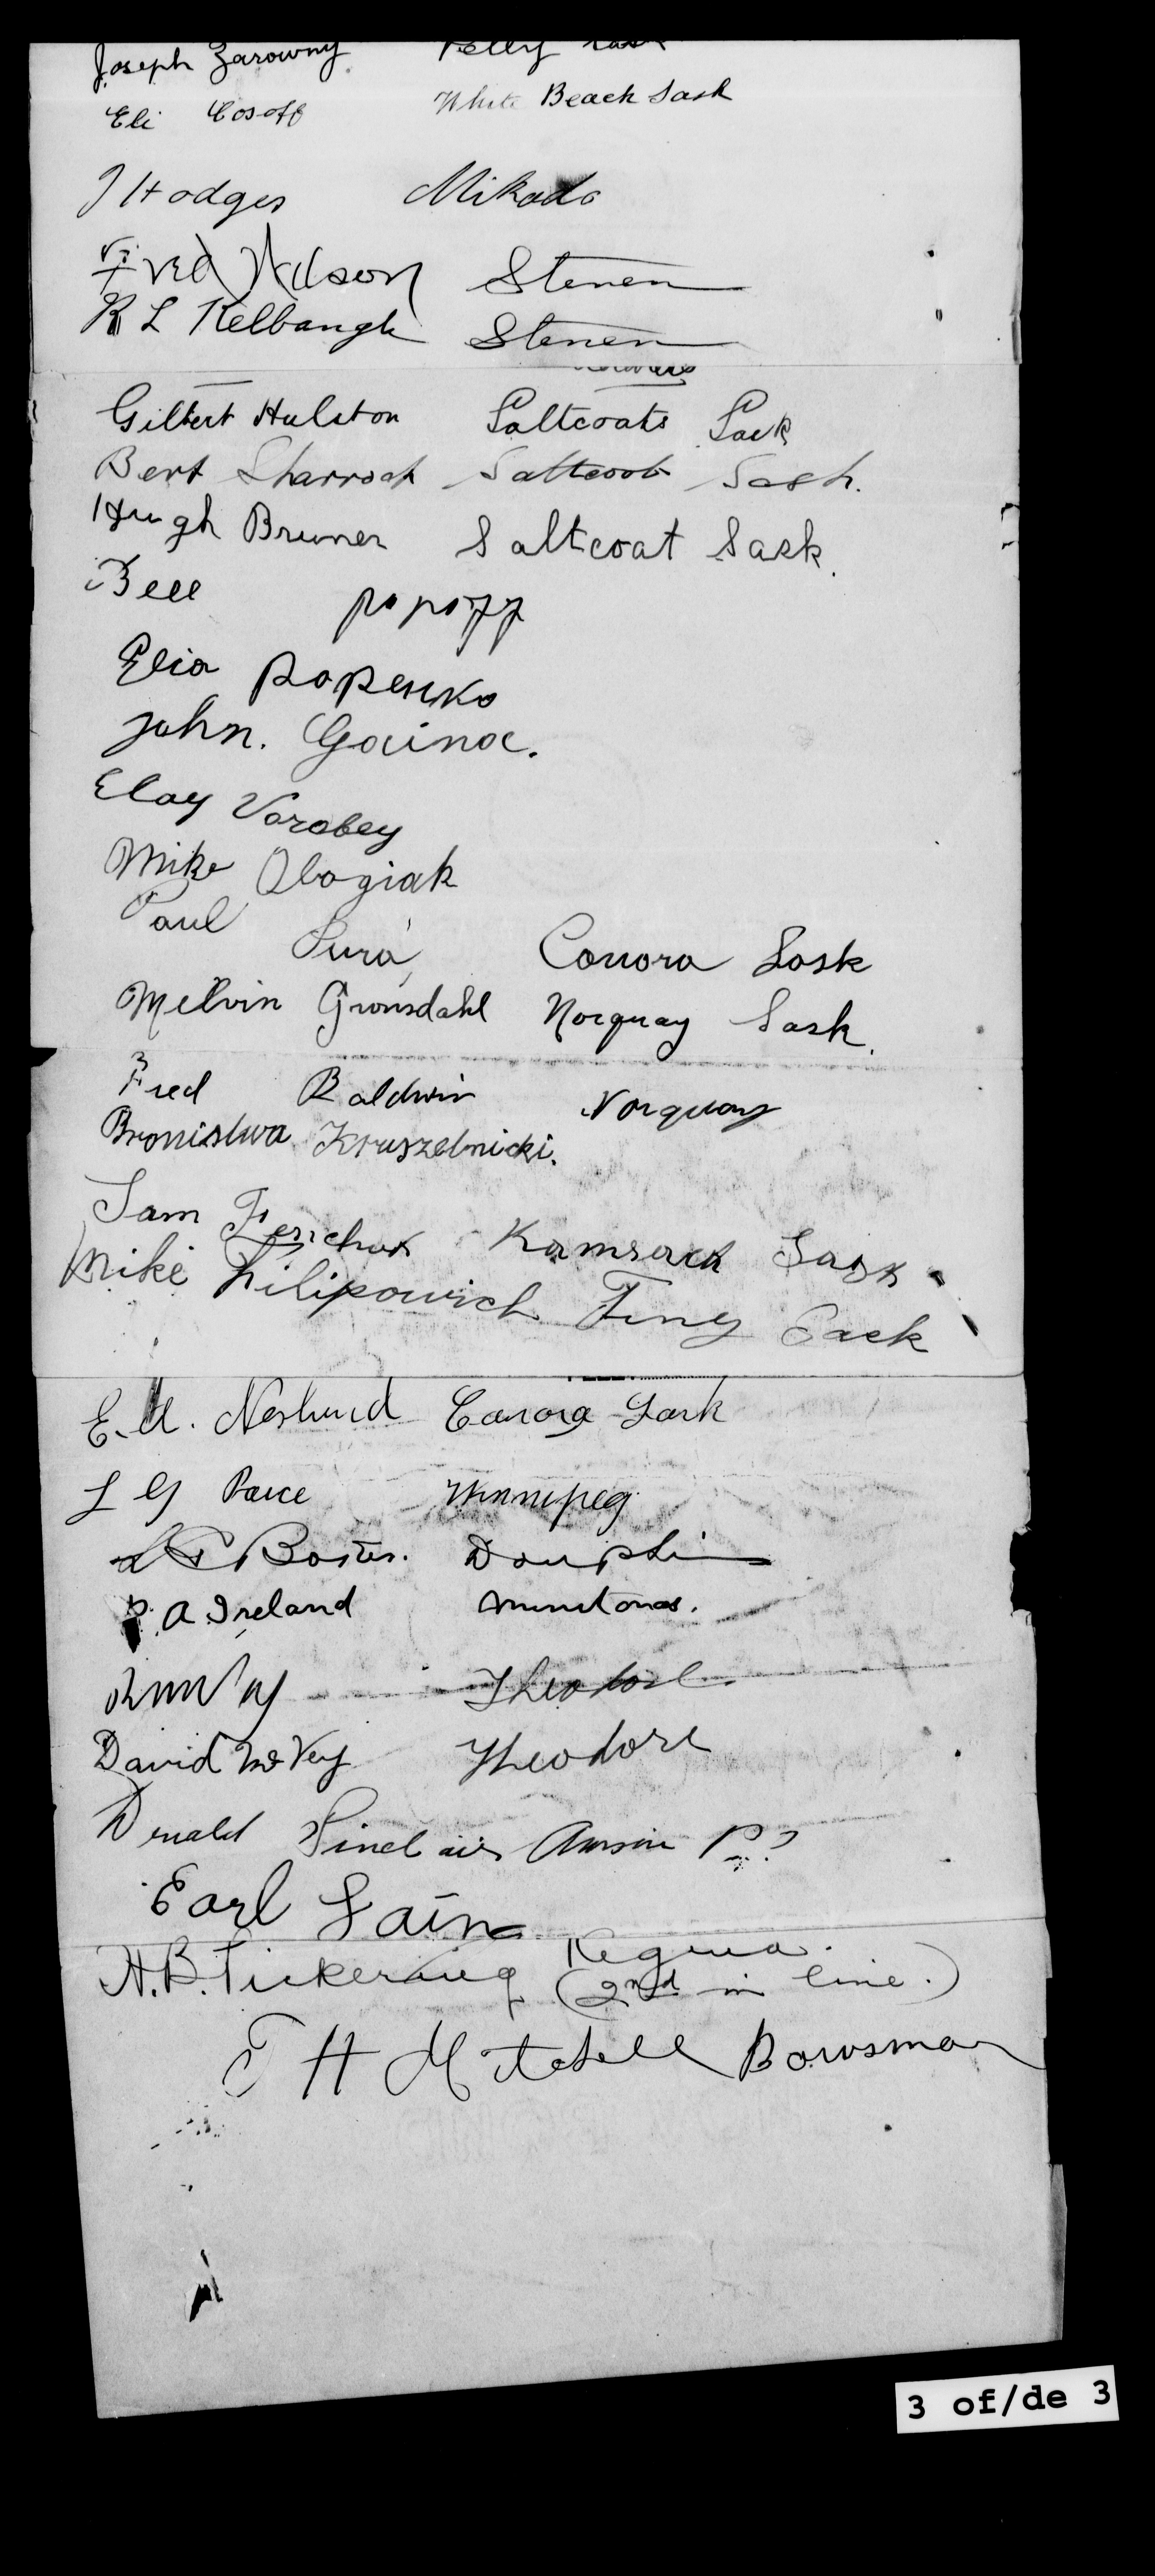 Joseph Zarowny Pelly Sask
Eli Cosoff White Beach Sask
J Hodges Mikado
Fred Wilson Stenen
R L Kelbaugh Stenen
Gilbert Hulston Saltcoats Sask
Bert Sharrock Saltcoat Sask.
Hugh Bruner Saltcoat Sask.
Bill popoff
Elia popenko
John. Gaina.
Elay Vorobey
Mike Obogiak
Paul Sura Canora Sask
Melvin Gronsdahl Norquay Sask.
Fred Baldwin Norquay
Bronislwa Kruszelnicki.
Sam Ferichuk Kamsack Sask
Mike Filipowich Tiny Sask
E. A. Neslund Canora Sask
L G Paice Winnipeg
Dauphin
P. A Ireland Minitonas.
Theodore
David McVey Theodore
Donald Sinclair
Earl Lains
H. B. Pickering Regina.
(2nd in line.)
T H Mitchell Bowsman
3 of/de 3